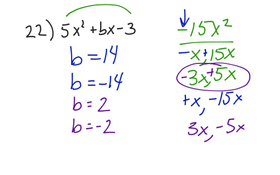 22) 5x² + bx - 3
b = 14
b = -14
b = 2
b = -2
-15x²
-x, +15x
-3x, +5x
+x, -15x
3x, -5x